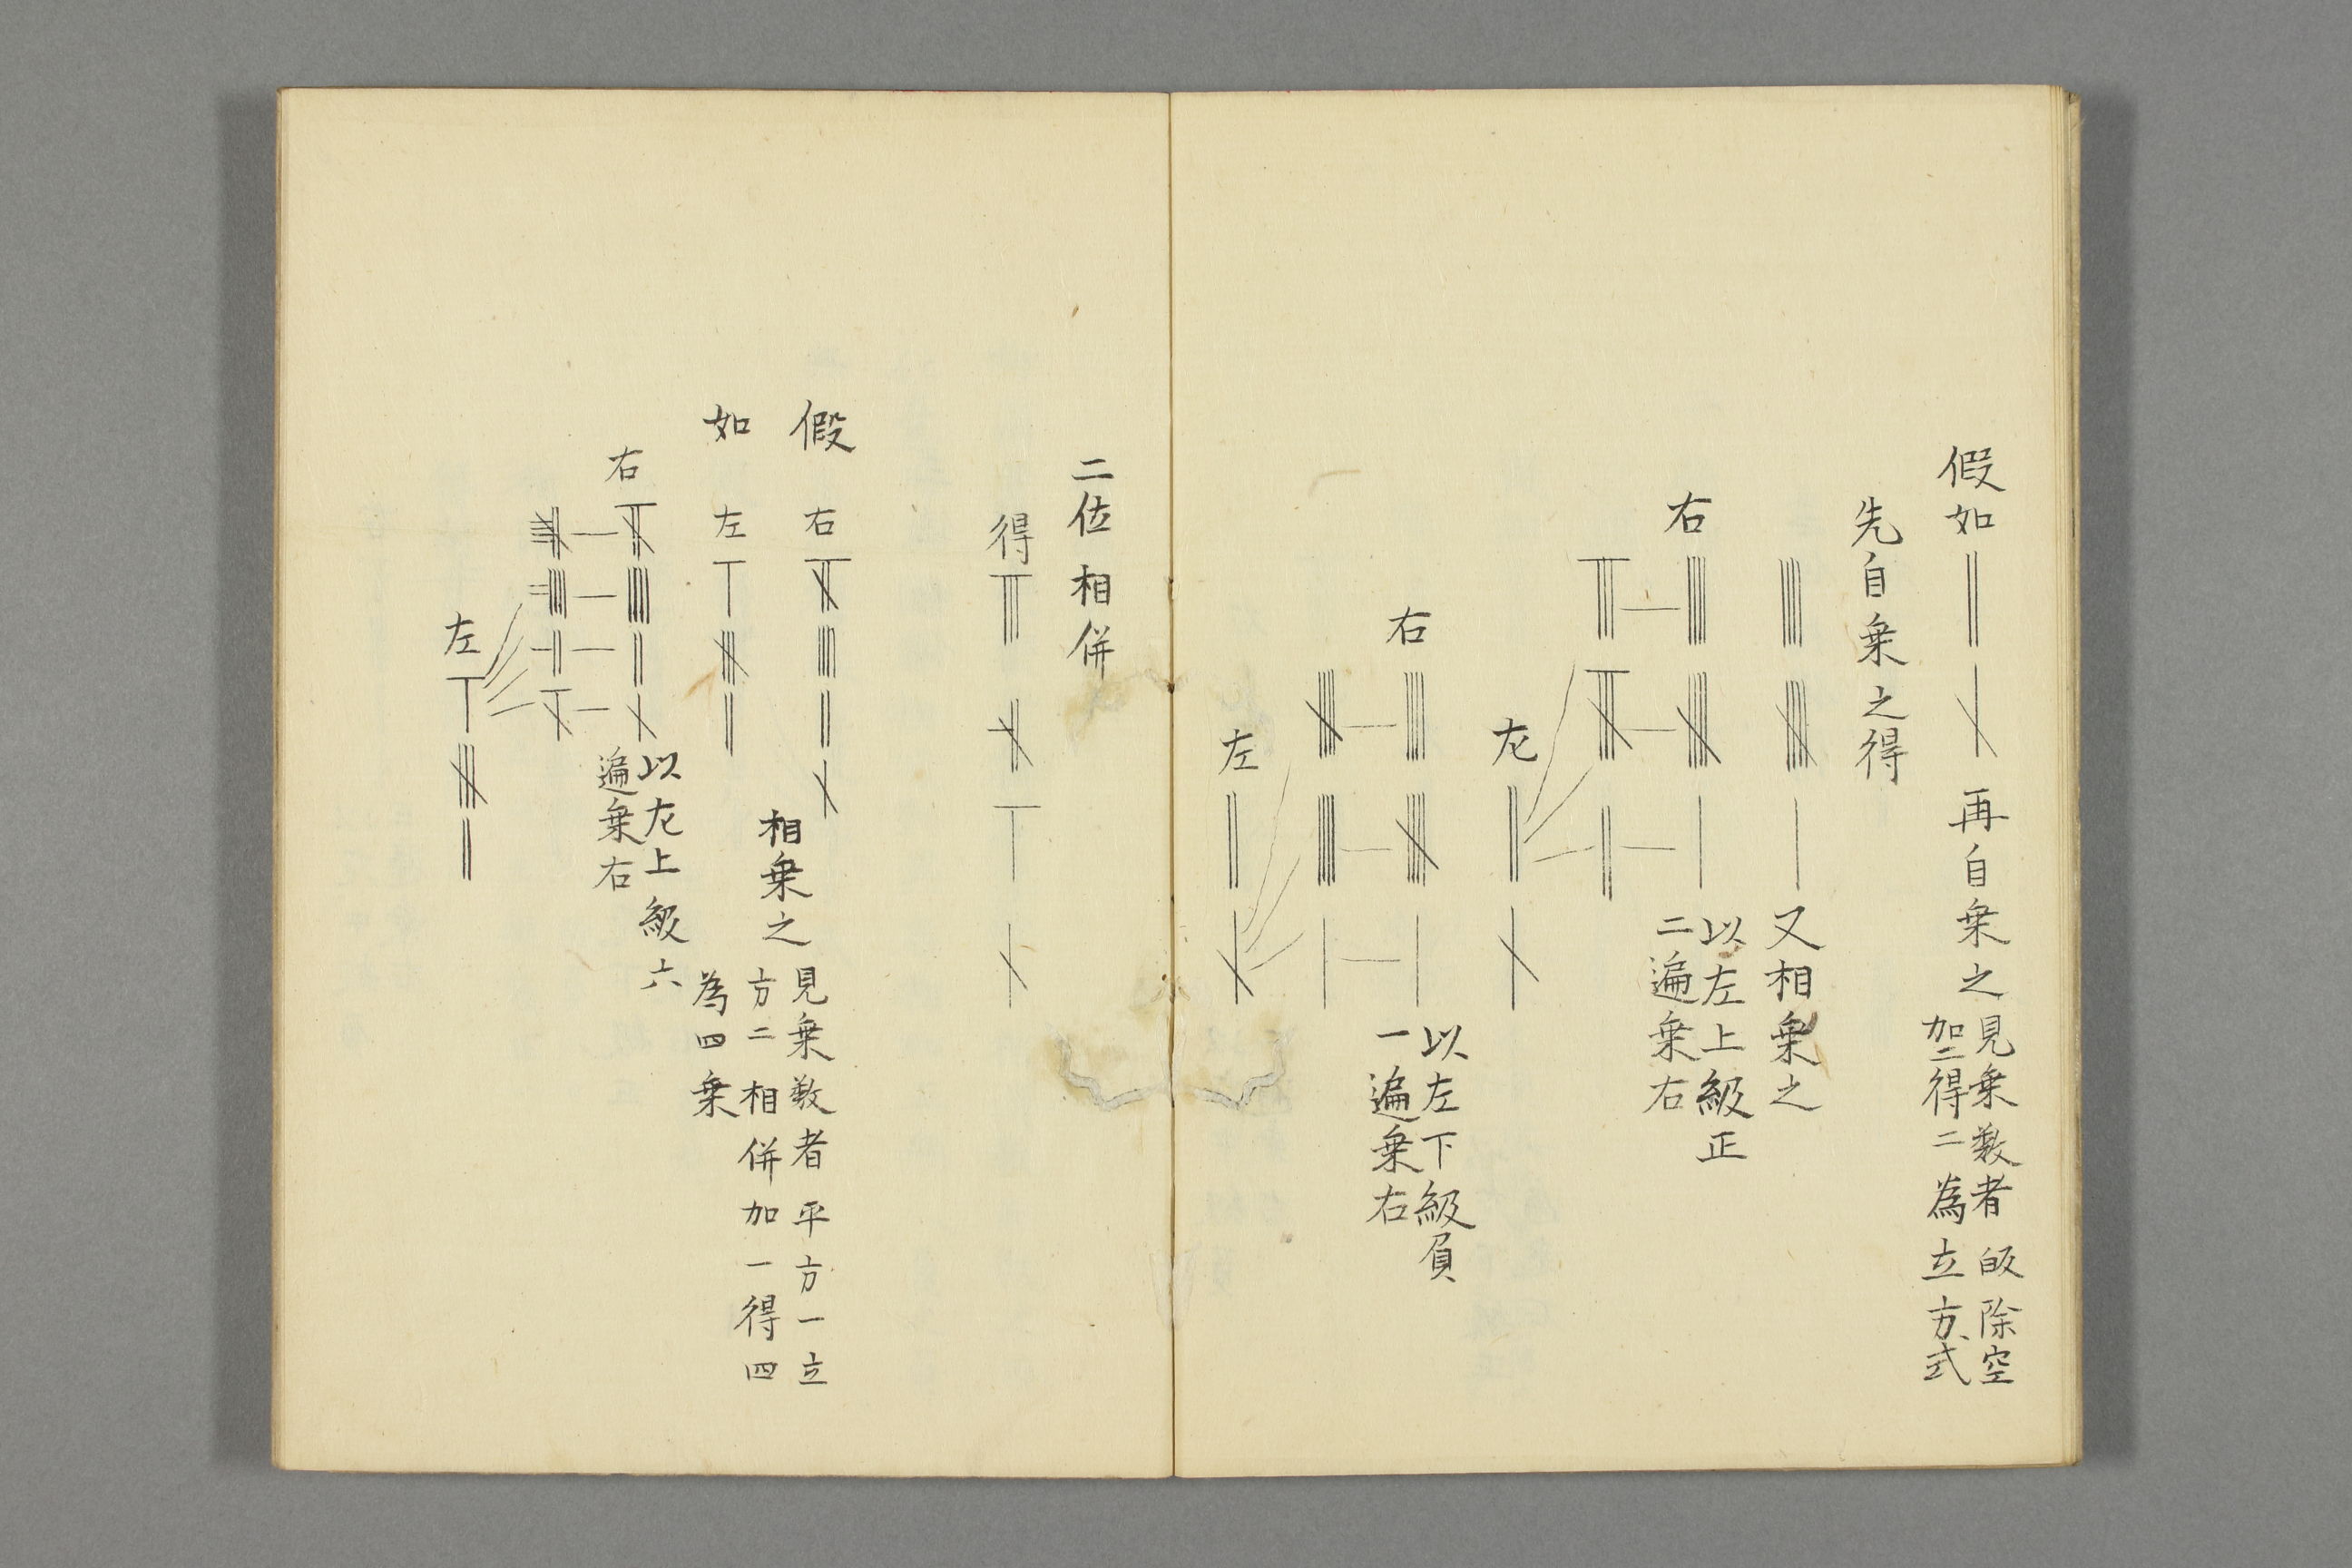 假如 再自乗之
見乗数者皈除空
加二得二為立方式
先自乗之得
又相乗之
右
以左上級正
二遍乗右
左
右
以左下級負
一遍乗右
左
二位相併
得
假 右
如 左
相乗之
見乗数者平方一立
方二相併加一得四
為四乗
右
以左上級六
遍乗右
左